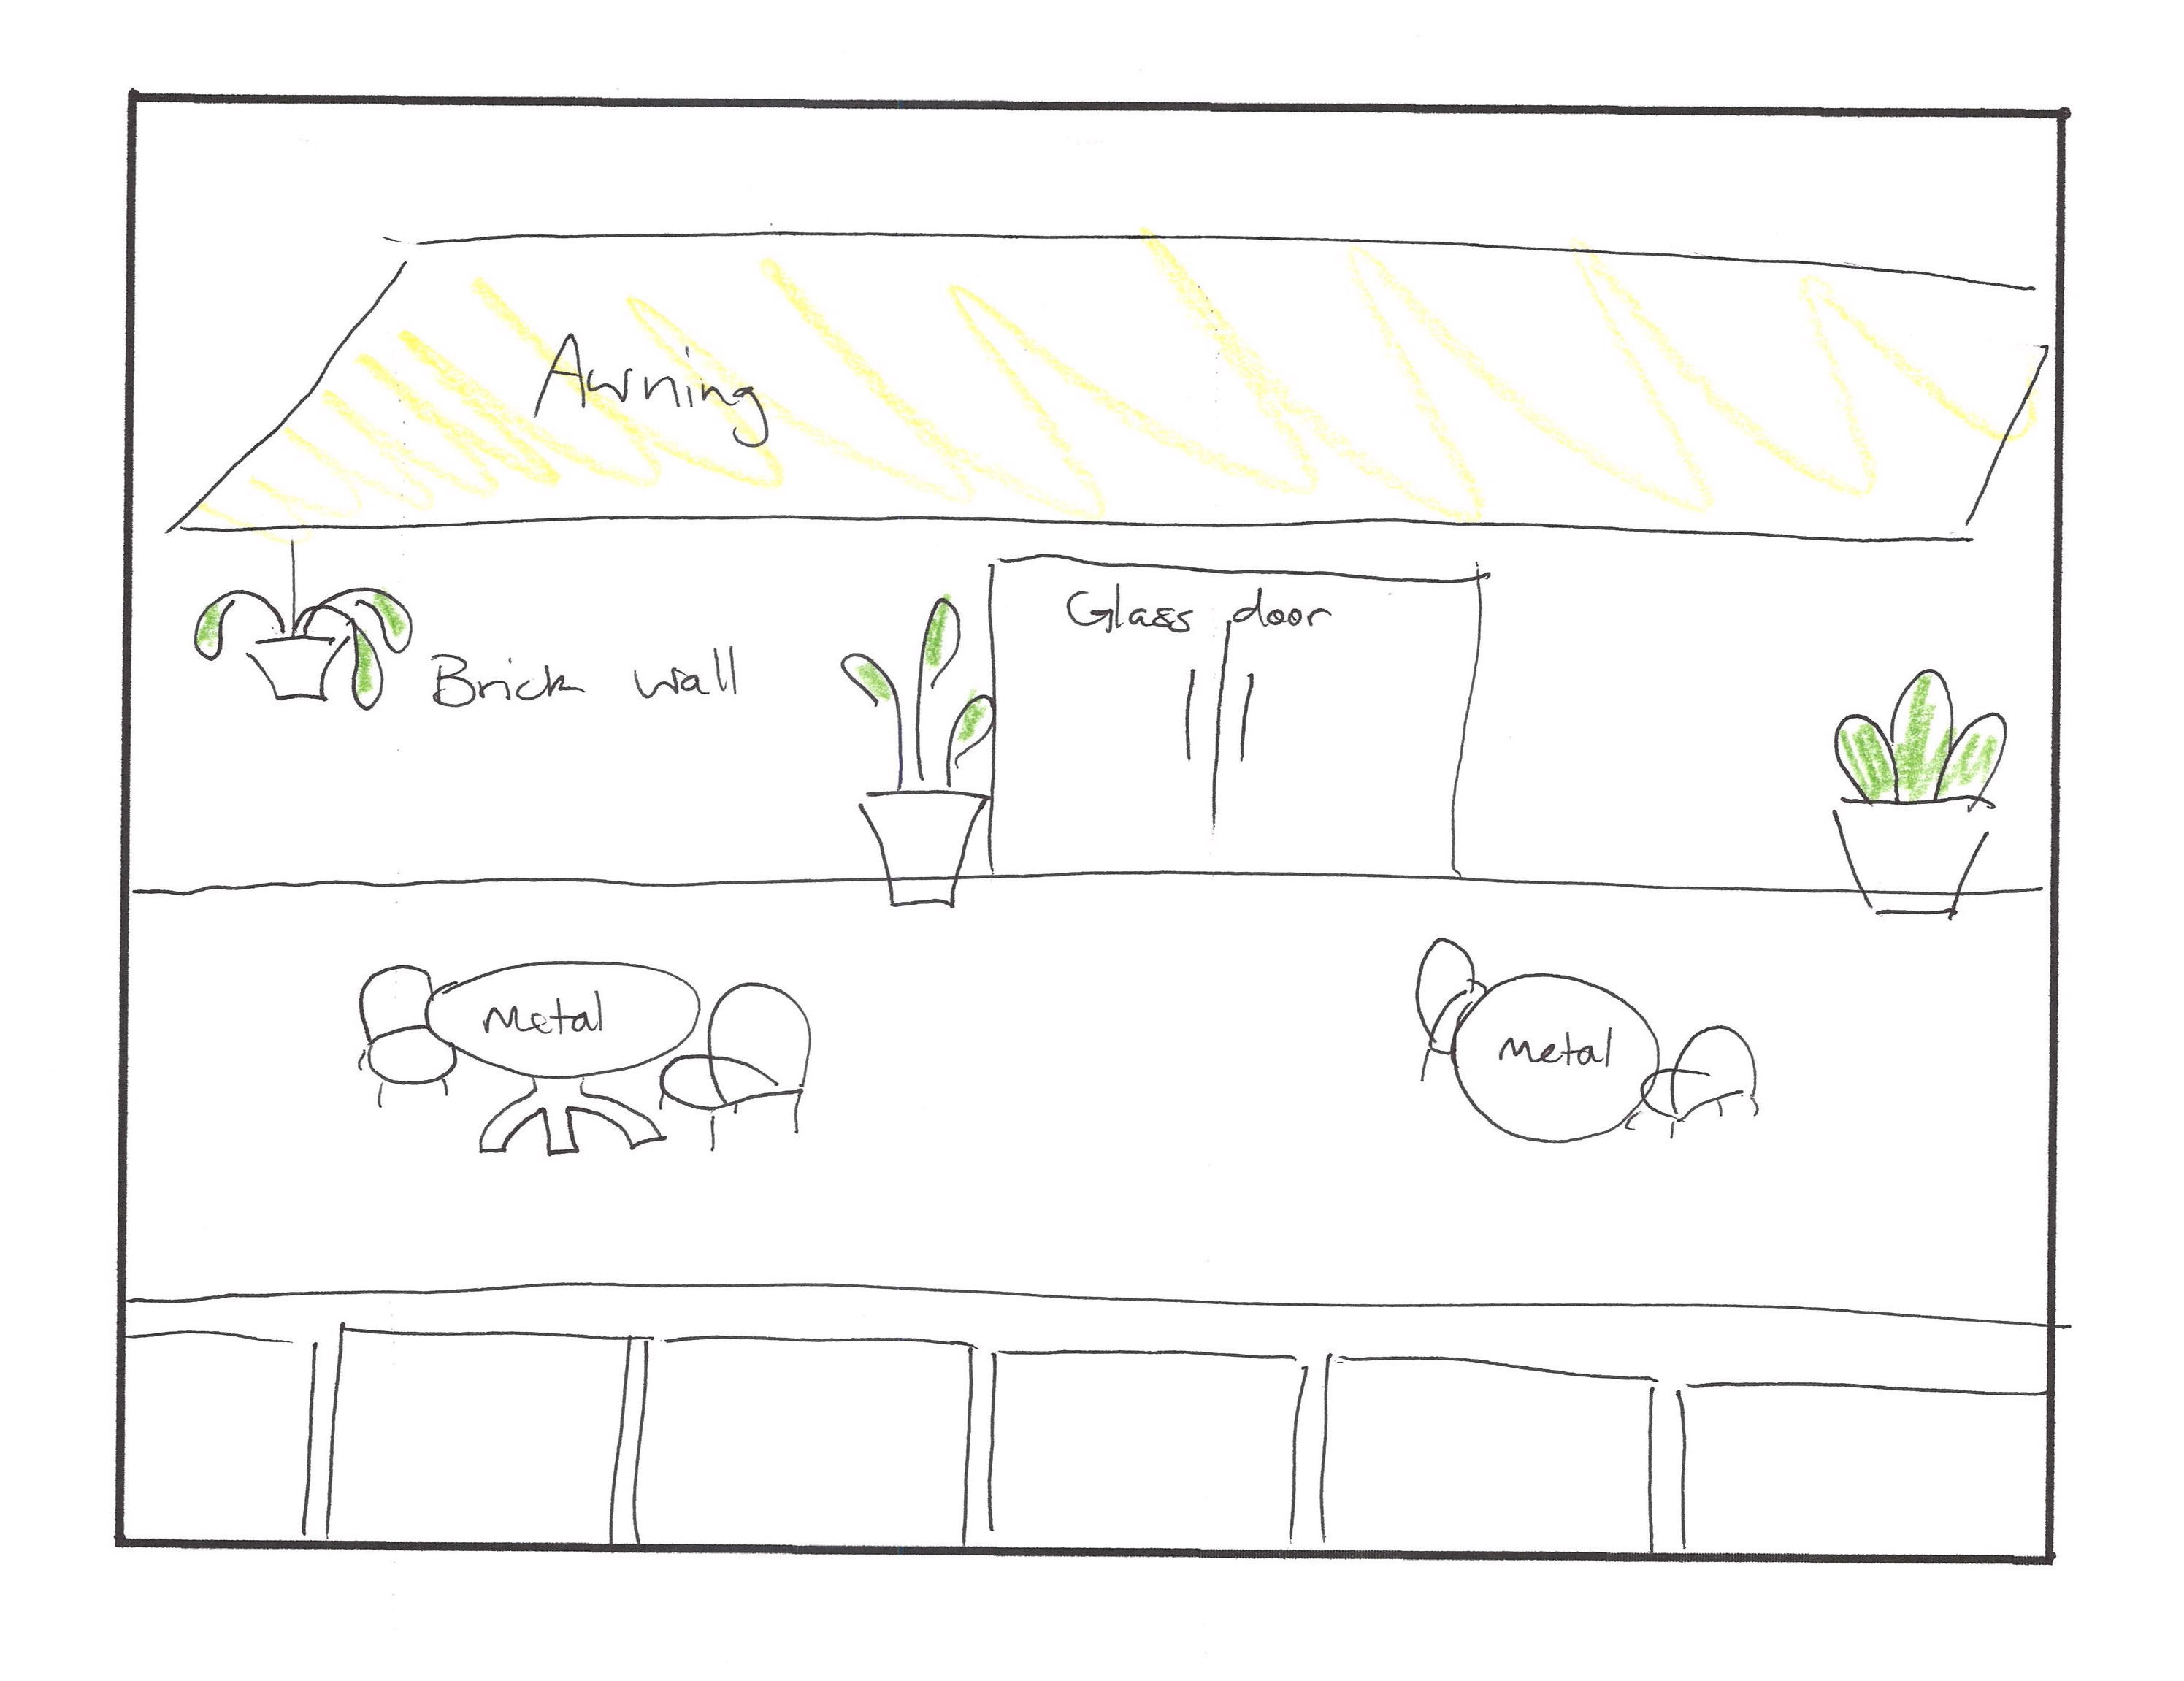 Awning
Glass door
Brick wall
Metal
Metal